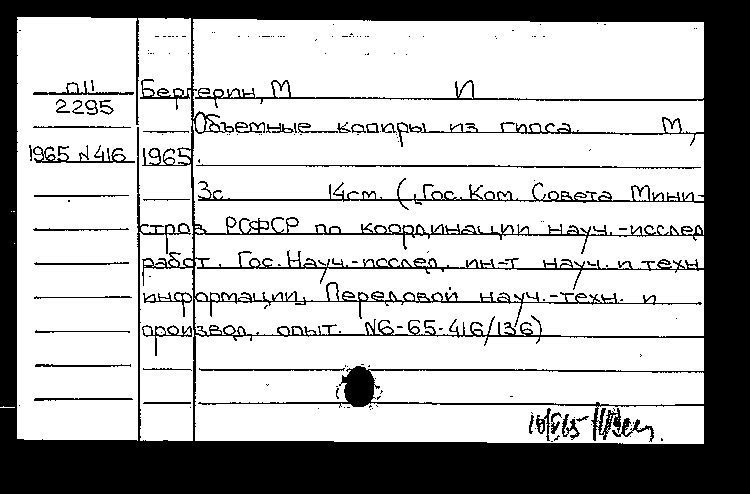 П11 Бергерин, М И
2295
Объемные копиры из гипса. М.,
1965 N416 1965.
3с. 14см. (Гос. Ком. Совета Мини-
стров РСФСР по координации науч.-исслед
работ. Гос. Науч.-исслед. ин-т науч. и техн
информации. Передовой науч.-техн. и
производ. опыт. N6-65-416/136)